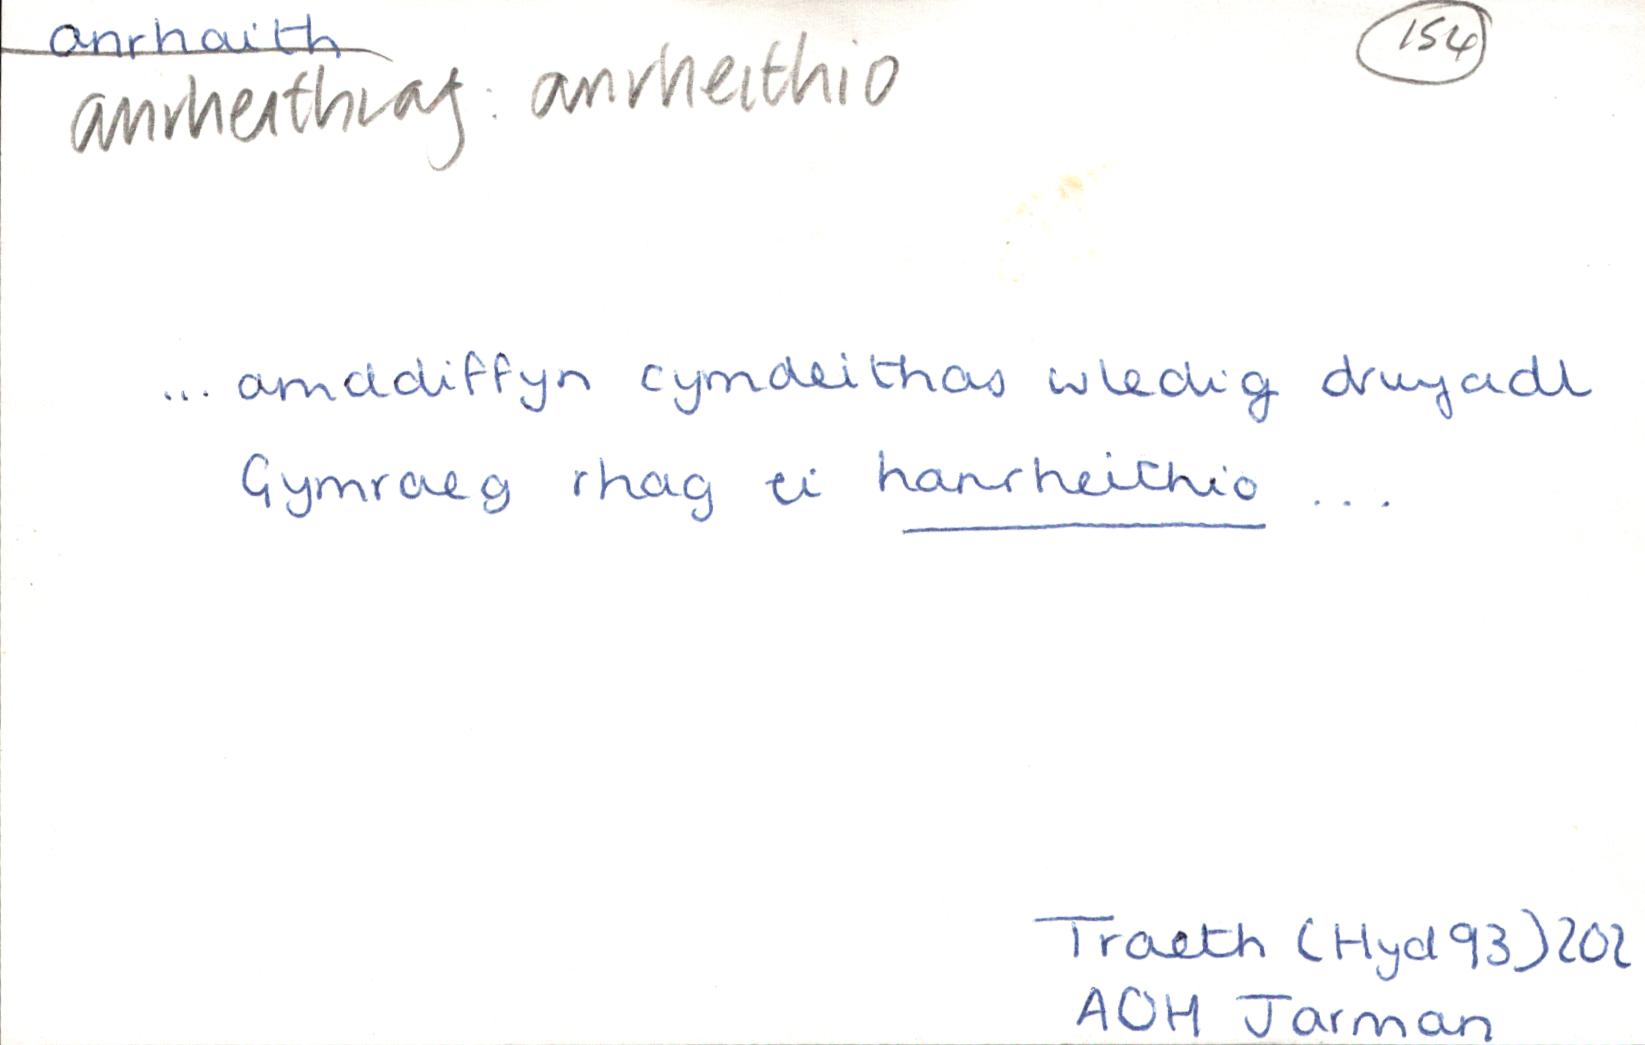 anrhaith
154
anrheithiaf: anrheithio
... amddiffyn cymdeithas wledig drwyadl
Gymraeg rhag ei hanrheithio ...
Traeth (Hyd 93) 202
AOH Jarman